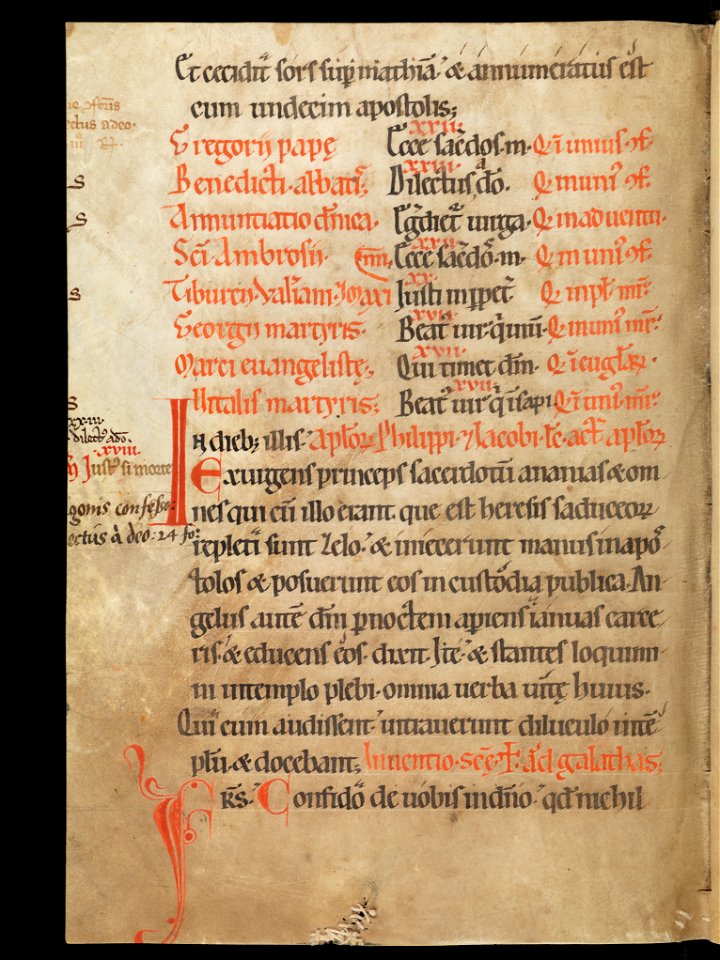 Et cecidit͛ sors sup͛ mathiā· & annumeratus est
cum undecim apostolis;
Gregorii papę xxii· Ecce sac͛dos·m· Q͛ i unius ꝯf·
Benedicti·abbatis· xxiii· Dilectus do͛· Q͛ in uniꝰ ꝯf·
Annuntiatio dn̄ica· Eg͛diet͛ uirga· Q͛ in aduentu·
Sci͛ Ambrosii· xxii· Ecce sac͛do͛·m· Q͛ in uniꝰ ꝯf·
Tiburtii·Val͛iani·Maxi mi͛· xx· Iusti in ꝑpet͛ Q͛ in pl͛· mr͛·
Georgii martyris· xvii· Beatꝰ uir·q͛ inuū· Q͛ in uniꝰ mr͛·
Marci euangelistę; xvii· Qui timet dm̄· Q͛ i eugl͛ar͛·
Uitalis martyris; xvii· Beatꝰ uir q͛ i sapi Q͛ i uniꝰ mr͛·
In dieb; illis· apl͛or͛ Philippi·⁊ Iacobi·le·act͛ apl͛or͛
Exurgens princeps sacerdotū ananias & om
nes qui cū illo erant· que est heresis saduceor͛
repleti sunt zelo· & iniecerunt manus in apo͛
stolos & posuerunt eos in custodia publica·An
gelus autē dn̄i ꝑ noctem aperiens ianuas carce
ris· & educens eos· dixit· Ite· & stantes loquimi
ni in templo plebi· omnia uerba uitę huius·
Qui cum audissent· intrauerunt diluculo in tē
plū· & docebant; Inuentio·scę·✝·ad galathas;
Fr̄s· Confido de uobis in dn̄o· qd̄ nichil
xxiii·
dilectꝰ a do͛·
xviii·
Iustꝰ si morte
gonis confesso:
ectus a deo: 24 fo: